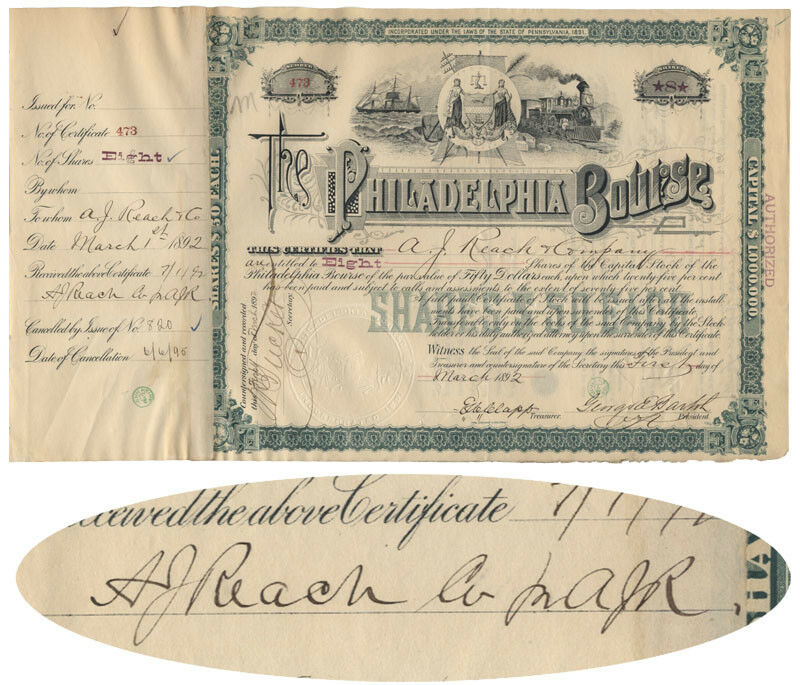 Issued for No.
No. of Certificate 473
No. of Shares Eight ✓
By whom
To whom A. J. Reach & Co
Date March 1st 1892
Received the above Certificate 7/1/92
A J Reach Co pr AJR
Cancelled by Issue of No. 820 ✓
Date of Cancellation 6/6/95
INCORPORATED UNDER THE LAWS OF THE STATE OF PENNSYLVANIA, 1891.
NUMBER
473
SHARES
★8★
The Philadelphia Bourse
SHARES $50 EACH
CAPITAL $1000,000
AUTHORIZED
THIS CERTIFIES THAT A. J. Reach & Company
are entitled to Eight Shares of the Capital Stock of the
Philadelphia Bourse of the par value of Fifty Dollars each, upon which twenty five per cent
has been paid and subject to calls and assessments to the extent of seventy five per cent.
A full paid Certificate of Stock will be issued after all the install-
ments have been paid and upon surrender of this Certificate.
Transferable only on the books of the said Company by the Stock-
holder or his duly authorized attorney upon the surrender of this Certificate.
Witness the Seal of the said Company the signatures of the President and
Treasurer and countersignature of the Secretary this First day of
March 1892
Treasurer.
George E. Bartol
President.
Countersigned and recorded
this First day of March 1892
Secretary.
received the above Certificate 7/1/92
A J Reach Co pr AJR